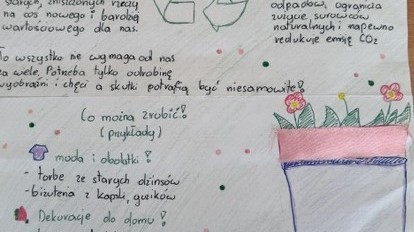 starych, zniszczonych rzeczy
na coś nowego i bardziej
wartościowego dla nas.
odpadów, ogranicza
zużycie surowców
naturalnych i napewno
redukuje emisję CO2
To wszystko nie wymaga od nas
za wiele. Potrzeba tylko odrobinę
wyobraźni i chęci a skutki potrafią być niesamowite!
Co można zrobić?
(przykłady)
moda i dodatki!
- torbę ze starych dżinsów
- biżuteria z kapsli, guzików
Dekoracje do domu!